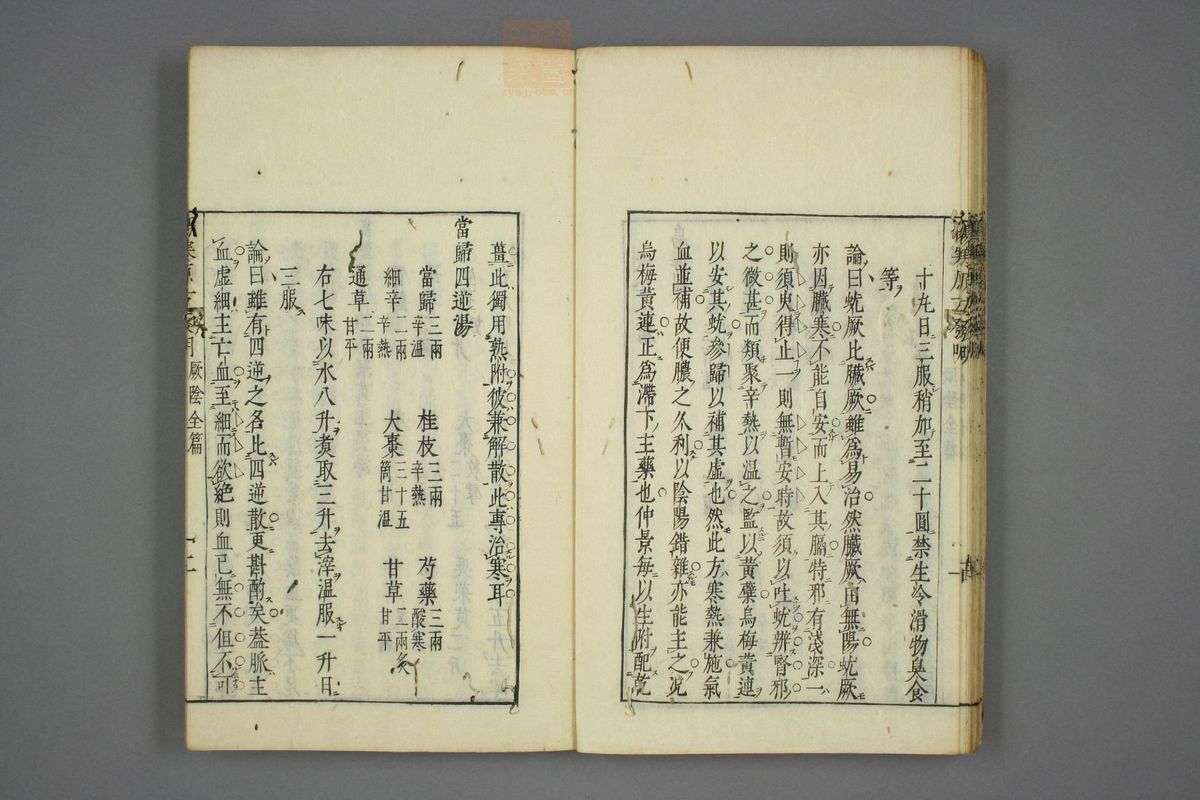 十九日三服稍加至二十圓禁生冷滑物臭食
等
論曰蚘厥比臟厥雖為易治然臟厥由無陽蚘厥
亦因臟寒不能自安而上入其膈特邪有淺深一
則須臾得止一則無暫安時故須以吐蚘辨腎邪
之微甚而類聚辛熱以温之監以黃蘗烏梅黃連
以安其蚘參歸以補其虛也然此方寒熱兼施氣
血並補故便膿之久利以陰陽錯雜亦能主之况
烏梅黃連正為滯下主藥也仲景每以生附配乾
薑此獨用熟附彼兼解散此專治寒耳
當歸四逆湯
當歸三兩辛温 桂枝三兩辛熱 芍藥三兩酸寒
細辛二兩辛熱 大棗二十五箇甘温 甘草二兩炙甘平
通草二兩甘平
右七味以水八升煑取三升去滓温服一升日
三服
論曰雖有四逆之名比四逆散更斟酌矣葢脈主
血虛細主亡血至細而欲絶則血已無不但不可
厥陰全篇